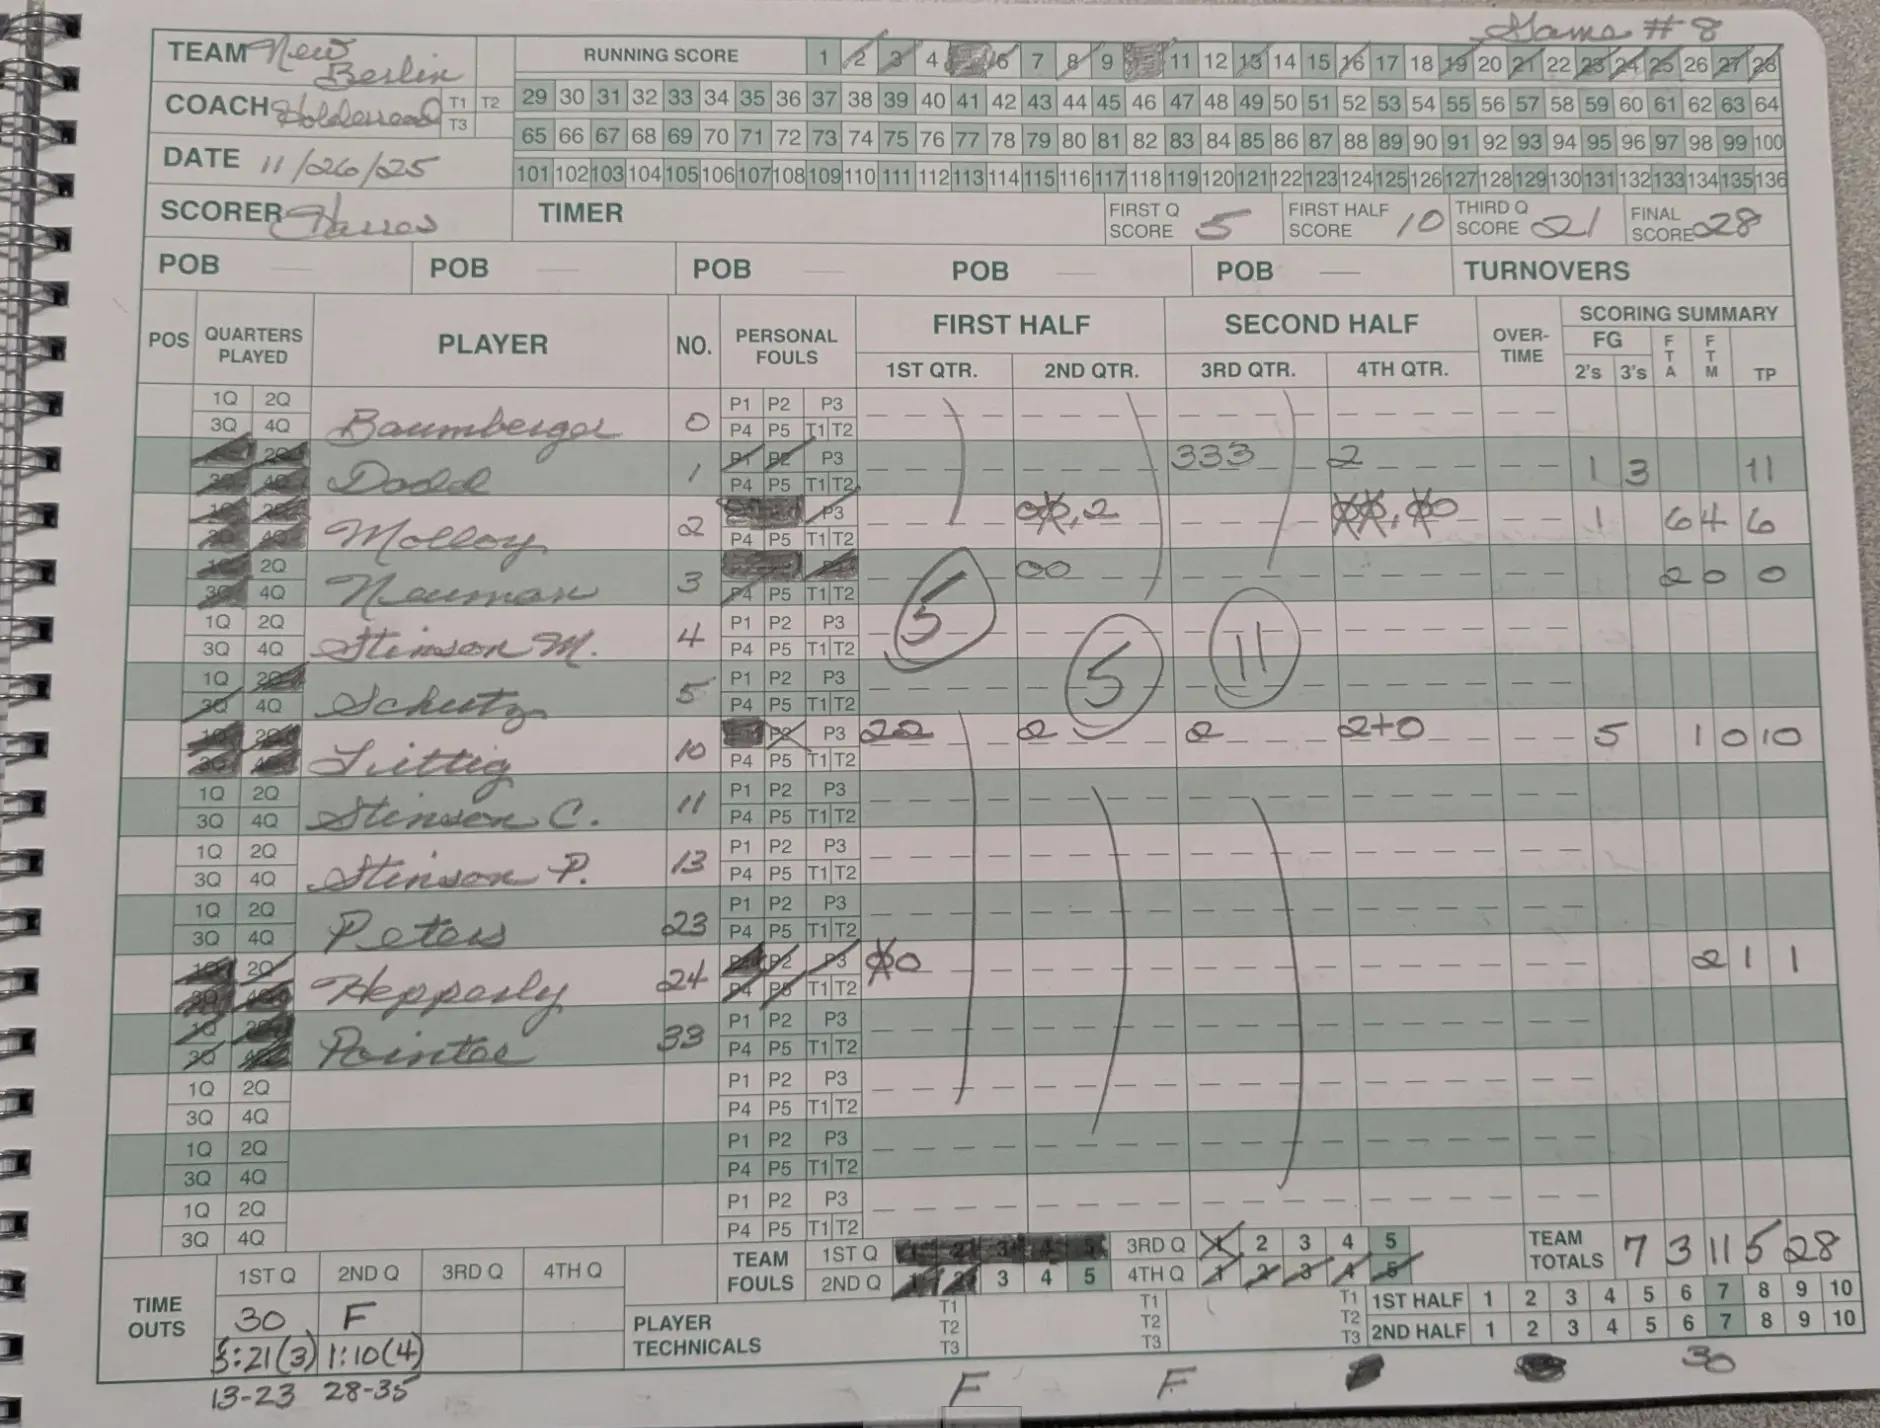 Game # 8
TEAM New Berlin
RUNNING SCORE 1 2 3 4 6 7 8 9 11 12 13 14 15 16 17 18 19 20 21 22 23 24 25 26 27 28
COACH Holderread T1 T2 T3
29 30 31 32 33 34 35 36 37 38 39 40 41 42 43 44 45 46 47 48 49 50 51 52 53 54 55 56 57 58 59 60 61 62 63 64
65 66 67 68 69 70 71 72 73 74 75 76 77 78 79 80 81 82 83 84 85 86 87 88 89 90 91 92 93 94 95 96 97 98 99 100
DATE 11/26/25
101 102 103 104 105 106 107 108 109 110 111 112 113 114 115 116 117 118 119 120 121 122 123 124 125 126 127 128 129 130 131 132 133 134 135 136
SCORER TIMER FIRST Q SCORE 5 FIRST HALF SCORE 10 THIRD Q SCORE 21 FINAL SCORE 28
POB — POB — POB — POB — POB — TURNOVERS
POS QUARTERS PLAYED PLAYER NO. PERSONAL FOULS FIRST HALF SECOND HALF OVER-TIME SCORING SUMMARY
1ST QTR. 2ND QTR. 3RD QTR. 4TH QTR. FG 2's 3's FTA FTM TP
1Q 2Q P1 P2 P3
3Q 4Q Baumberger 0 P4 P5 T1 T2
2Q P1 P2 P3 333 2
3Q 4Q Dodd 1 P4 P5 T1 T2 1 3 11
1Q 2Q P3 2
3Q 4Q Molloy 2 P4 P5 T1 T2 1 6 4 6
1Q 2Q 00
3Q 4Q Neuman 3 P4 P5 T1 T2 2 0 0
1Q 2Q P1 P2 P3 5
3Q 4Q Stinson M. 4 P4 P5 T1 T2
1Q 2Q P1 P2 P3 5 11
3Q 4Q Schutz 5 P4 P5 T1 T2
1Q 2Q P2 P3 22 2 2 2+0 5 1 0 10
3Q 4Q Littig 10 P4 P5 T1 T2
1Q 2Q P1 P2 P3
3Q 4Q Stinson C. 11 P4 P5 T1 T2
1Q 2Q P1 P2 P3
3Q 4Q Stinson P. 13 P4 P5 T1 T2
1Q 2Q P1 P2 P3
3Q 4Q Peters 23 P4 P5 T1 T2
1Q 2Q P1 P2 P3 0 2 1 1
3Q 4Q Hepperly 24 P4 P5 T1 T2
1Q 2Q P1 P2 P3
3Q 4Q Pointer 33 P4 P5 T1 T2
1Q 2Q P1 P2 P3
3Q 4Q P4 P5 T1 T2
1Q 2Q P1 P2 P3
3Q 4Q P4 P5 T1 T2
1Q 2Q P1 P2 P3
3Q 4Q P4 P5 T1 T2
TEAM FOULS 1ST Q 1 2 3 4 5 3RD Q 1 2 3 4 5 TEAM TOTALS 7 3 11 5 28
2ND Q 1 2 3 4 5 4TH Q 1 2 3 4 5
TIME OUTS 1ST Q 2ND Q 3RD Q 4TH Q
30 F
5:21(3) 1:10(4)
13-23 28-35
PLAYER TECHNICALS T1 T2 T3 T1 T2 T3 T1 T2 T3
1ST HALF 1 2 3 4 5 6 7 8 9 10
2ND HALF 1 2 3 4 5 6 7 8 9 10
F F 30